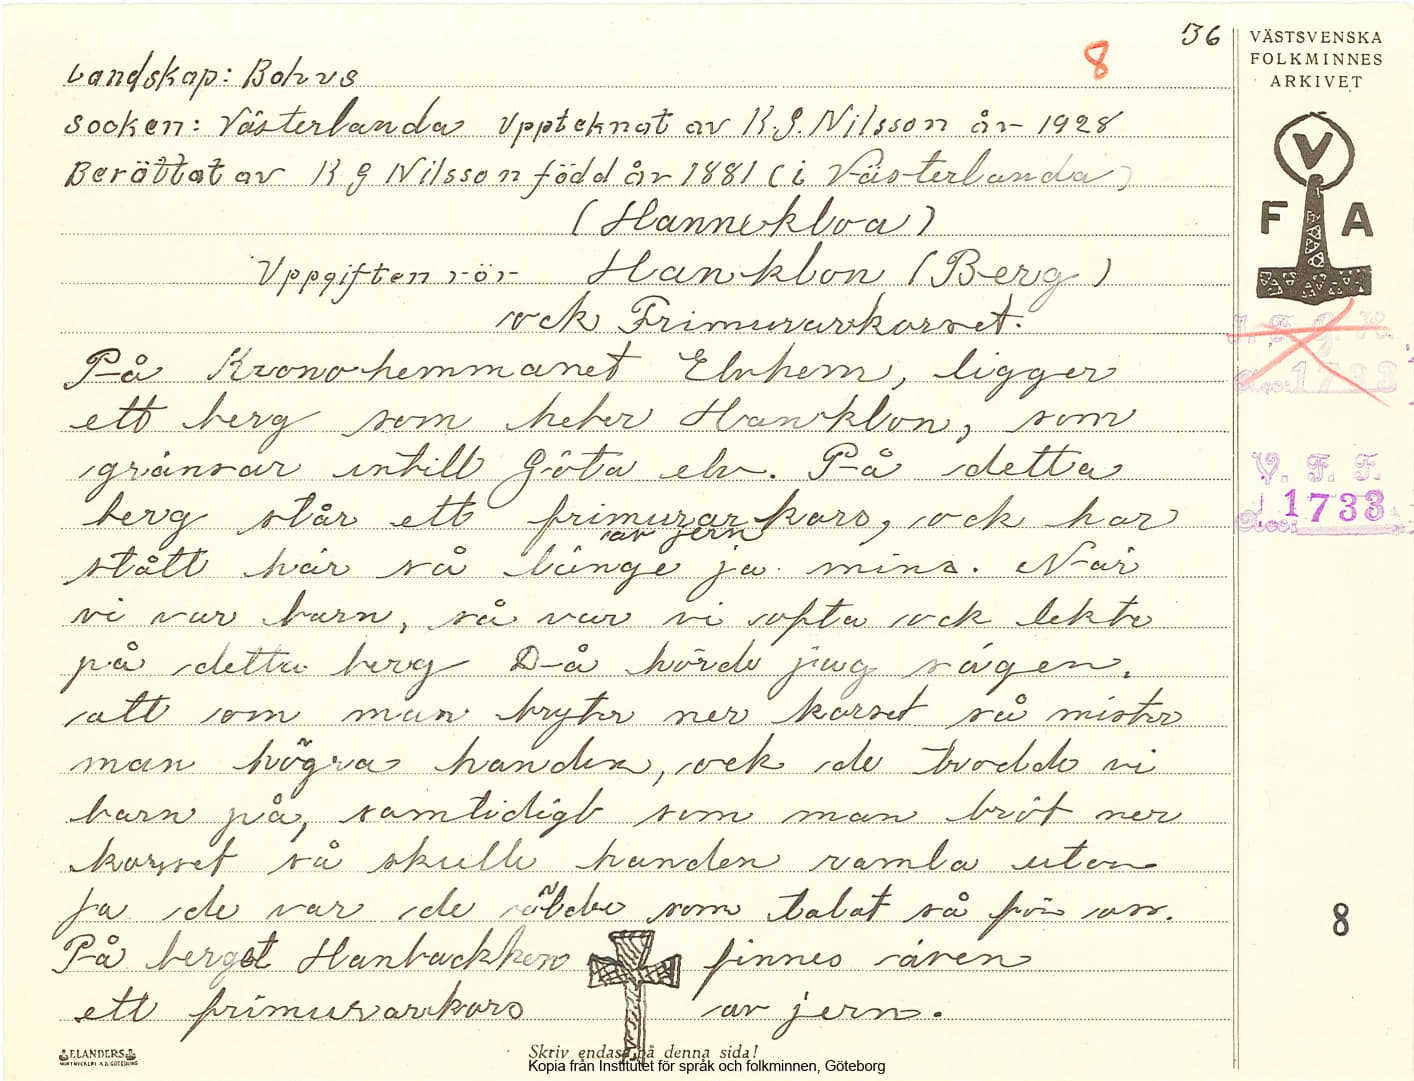 36
8
VÄSTSVENSKA
FOLKMINNES
ARKIVET
Landskap: Bohus
Socken: Västerlanda Upptecknat av K.G. Nilsson år 1928
Berättat av K G Nilsson född år 1881 (i Västerlanda)
(Hanneklva)
V
F A
Uppgiften rör Hanklon (Berg)
ock Frimurarkorset.
På Kronohemmanet Elvhem, ligger
ett berg som heter Hanklon, som
gränsar intill Göta elv. På detta
berg står ett frimurarkors, ock har
av jern
stått här så länge ja mins. När
vi var barn, så var vi ofta ock lekte
på detta berg Då hörde jag sägen,
att om man bryter ner korset så mister
man högra handen, ock de trodde vi
barn på, samtidigt som man bröt ner
korset så skulle handen ramla utav
Ja de var de äldre som talat så för oss.
På berget Hanbackken finnes även
ett frimurarkors av jern.
V. F. F.
Acc: 1733
8
ELANDERS
Skriv endast på denna sida!
Kopia från Institutet för språk och folkminnen, Göteborg